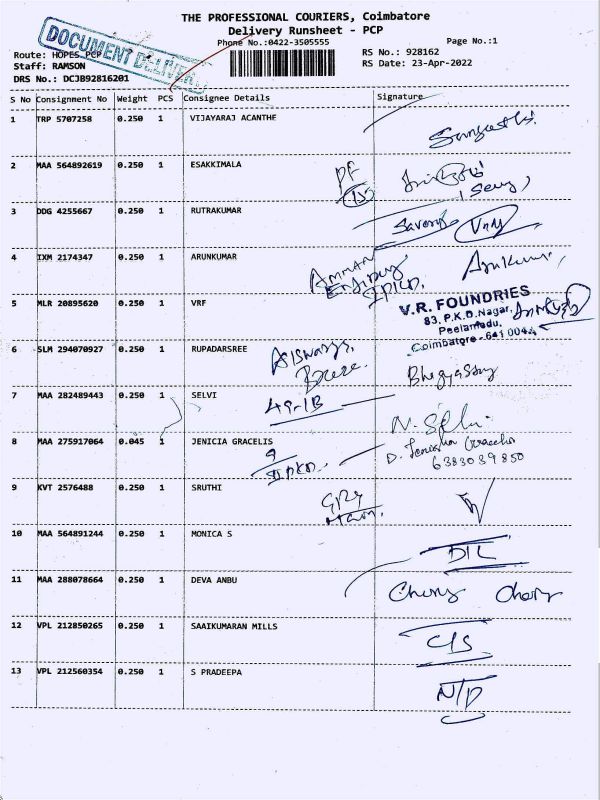 THE PROFESSIONAL COURIERS, Coimbatore
Delivery Runsheet - PCP
Phone No.:0422-3505555
Page No.:1
DOCUMENT
Route: HOPES PCP
RS No.: 928162
Staff: RAMSON
RS Date: 23-Apr-2022
DRS No.: DCJB92816201
S No Consignment No Weight PCS Consignee Details Signature
1 TRP 5707258 0.250 1 VIJAYARAJ ACANTHE
2 MAA 564892619 0.250 1 ESAKKIMALA
3 DDG 4255667 0.250 1 RUTRAKUMAR
4 IXM 2174347 0.250 1 ARUNKUMAR
5 MLR 20895620 0.250 1 VRF
V.R. FOUNDRIES
83, P.K.D. Nagar,
Peelamedu,
Coimbatore - 641 004
6 SLM 294070927 0.250 1 RUPADARSREE
7 MAA 282489443 0.250 1 SELVI
49-1B
8 MAA 275917064 0.045 1 JENICIA GRACELIS
6383039850
9 KVT 2576488 0.250 1 SRUTHI
10 MAA 564891244 0.250 1 MONICA S
DTL
11 MAA 288078664 0.250 1 DEVA ANBU
12 VPL 212850265 0.250 1 SAAIKUMARAN MILLS
C/S
13 VPL 212560354 0.250 1 S PRADEEPA
NTD